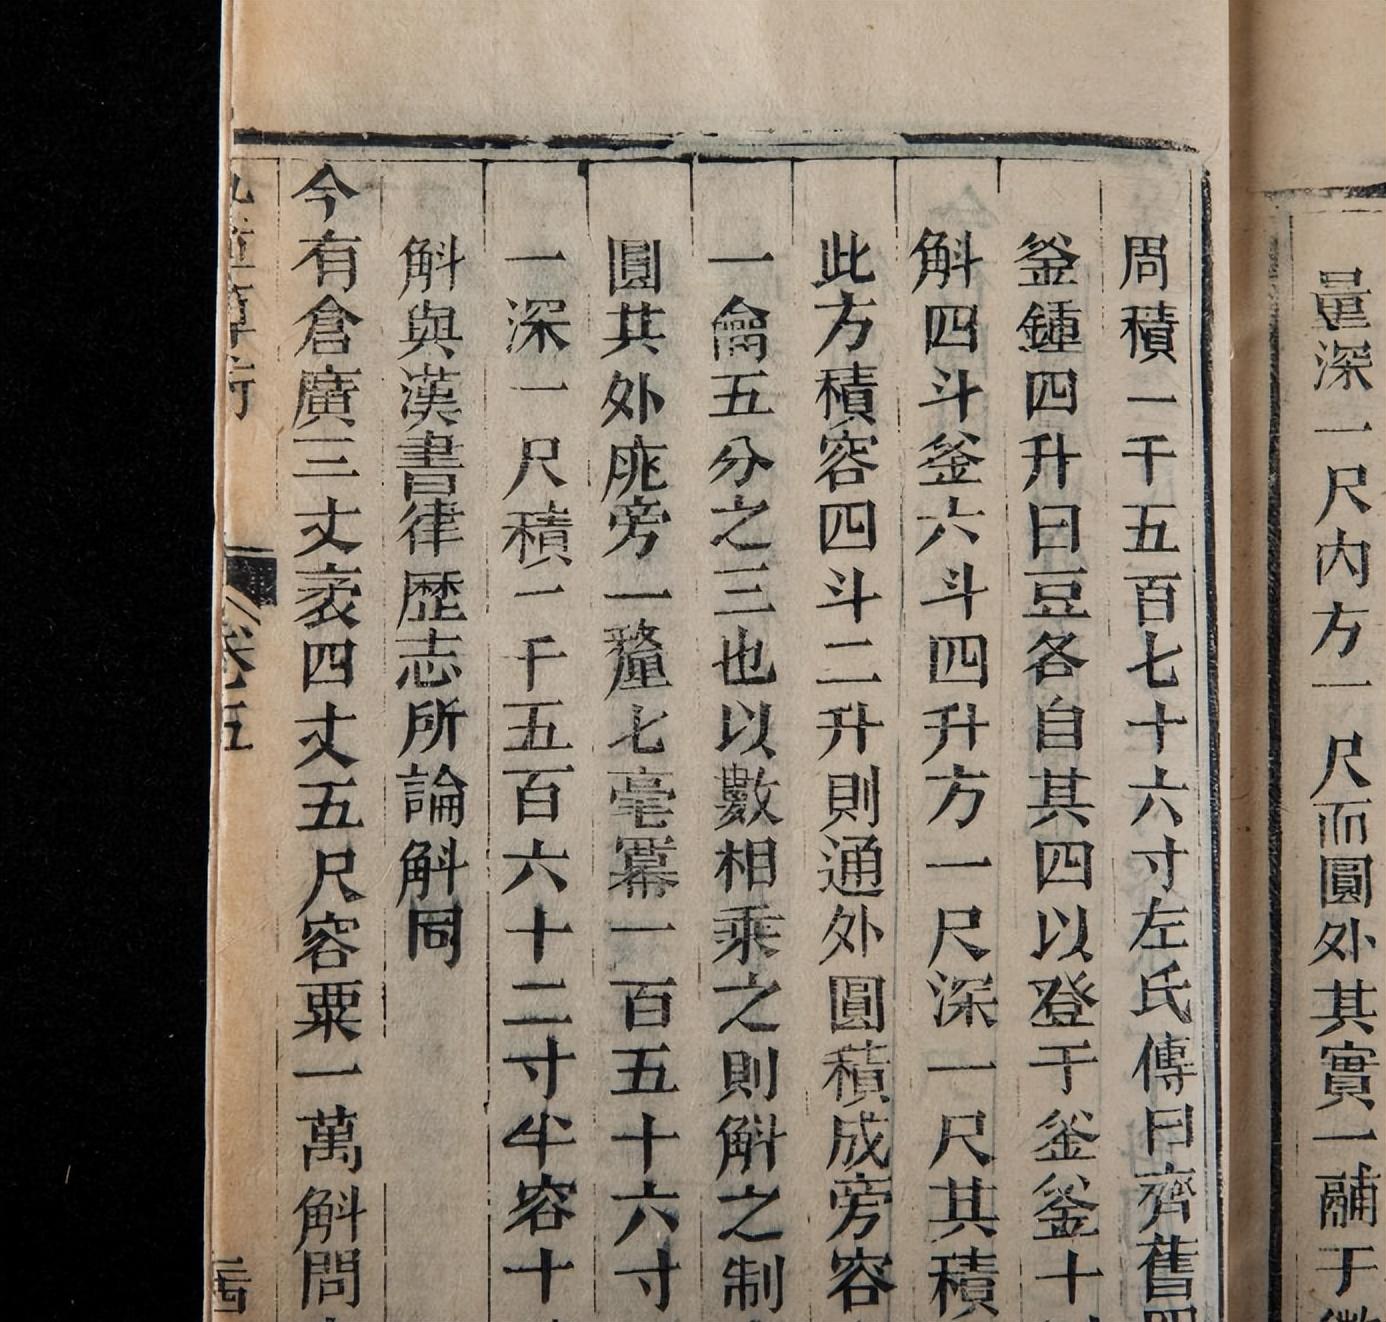 量深一尺內方一尺而圓外其實一鬴于
周積一千五百七十六寸左氏傳曰齊舊四
釜鍾四升曰豆各自其四以登于釜釜十
斛四斗釜六斗四升方一尺深一尺其積
此方積容四斗二升則通外圓積成旁容
一龠五分之三也以數相乘之則斛之制
圓其外庣旁一釐七毫冪一百五十六寸
一深一尺積一千五百六十二寸半容十
斛與漢書律歷志所論斛同
今有倉廣三丈袤四丈五尺容粟一萬斛問
九章算術
卷五